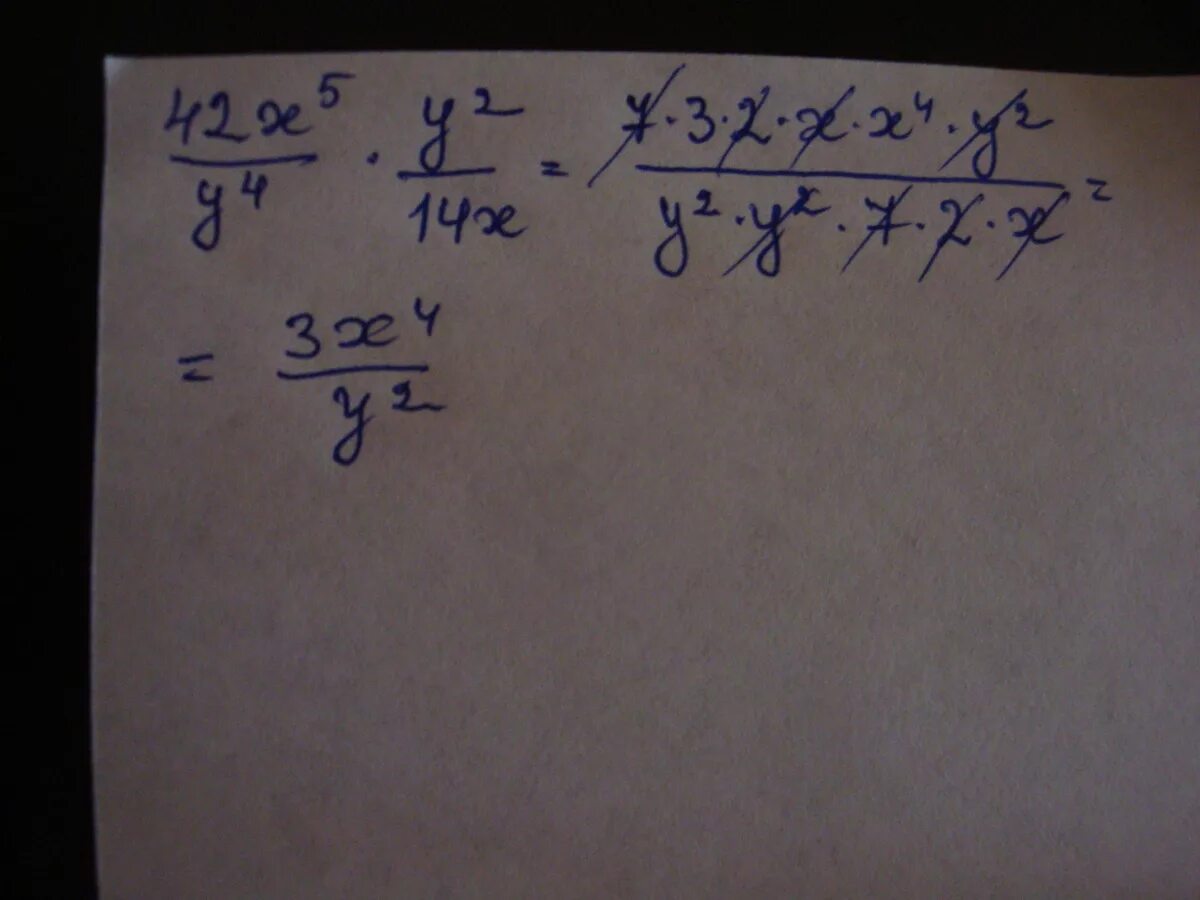 42x⁵/y⁴ · y²/14x = 7·3·2·x·x⁴·y²/y²·y²·7·2·x =
= 3x⁴/y²